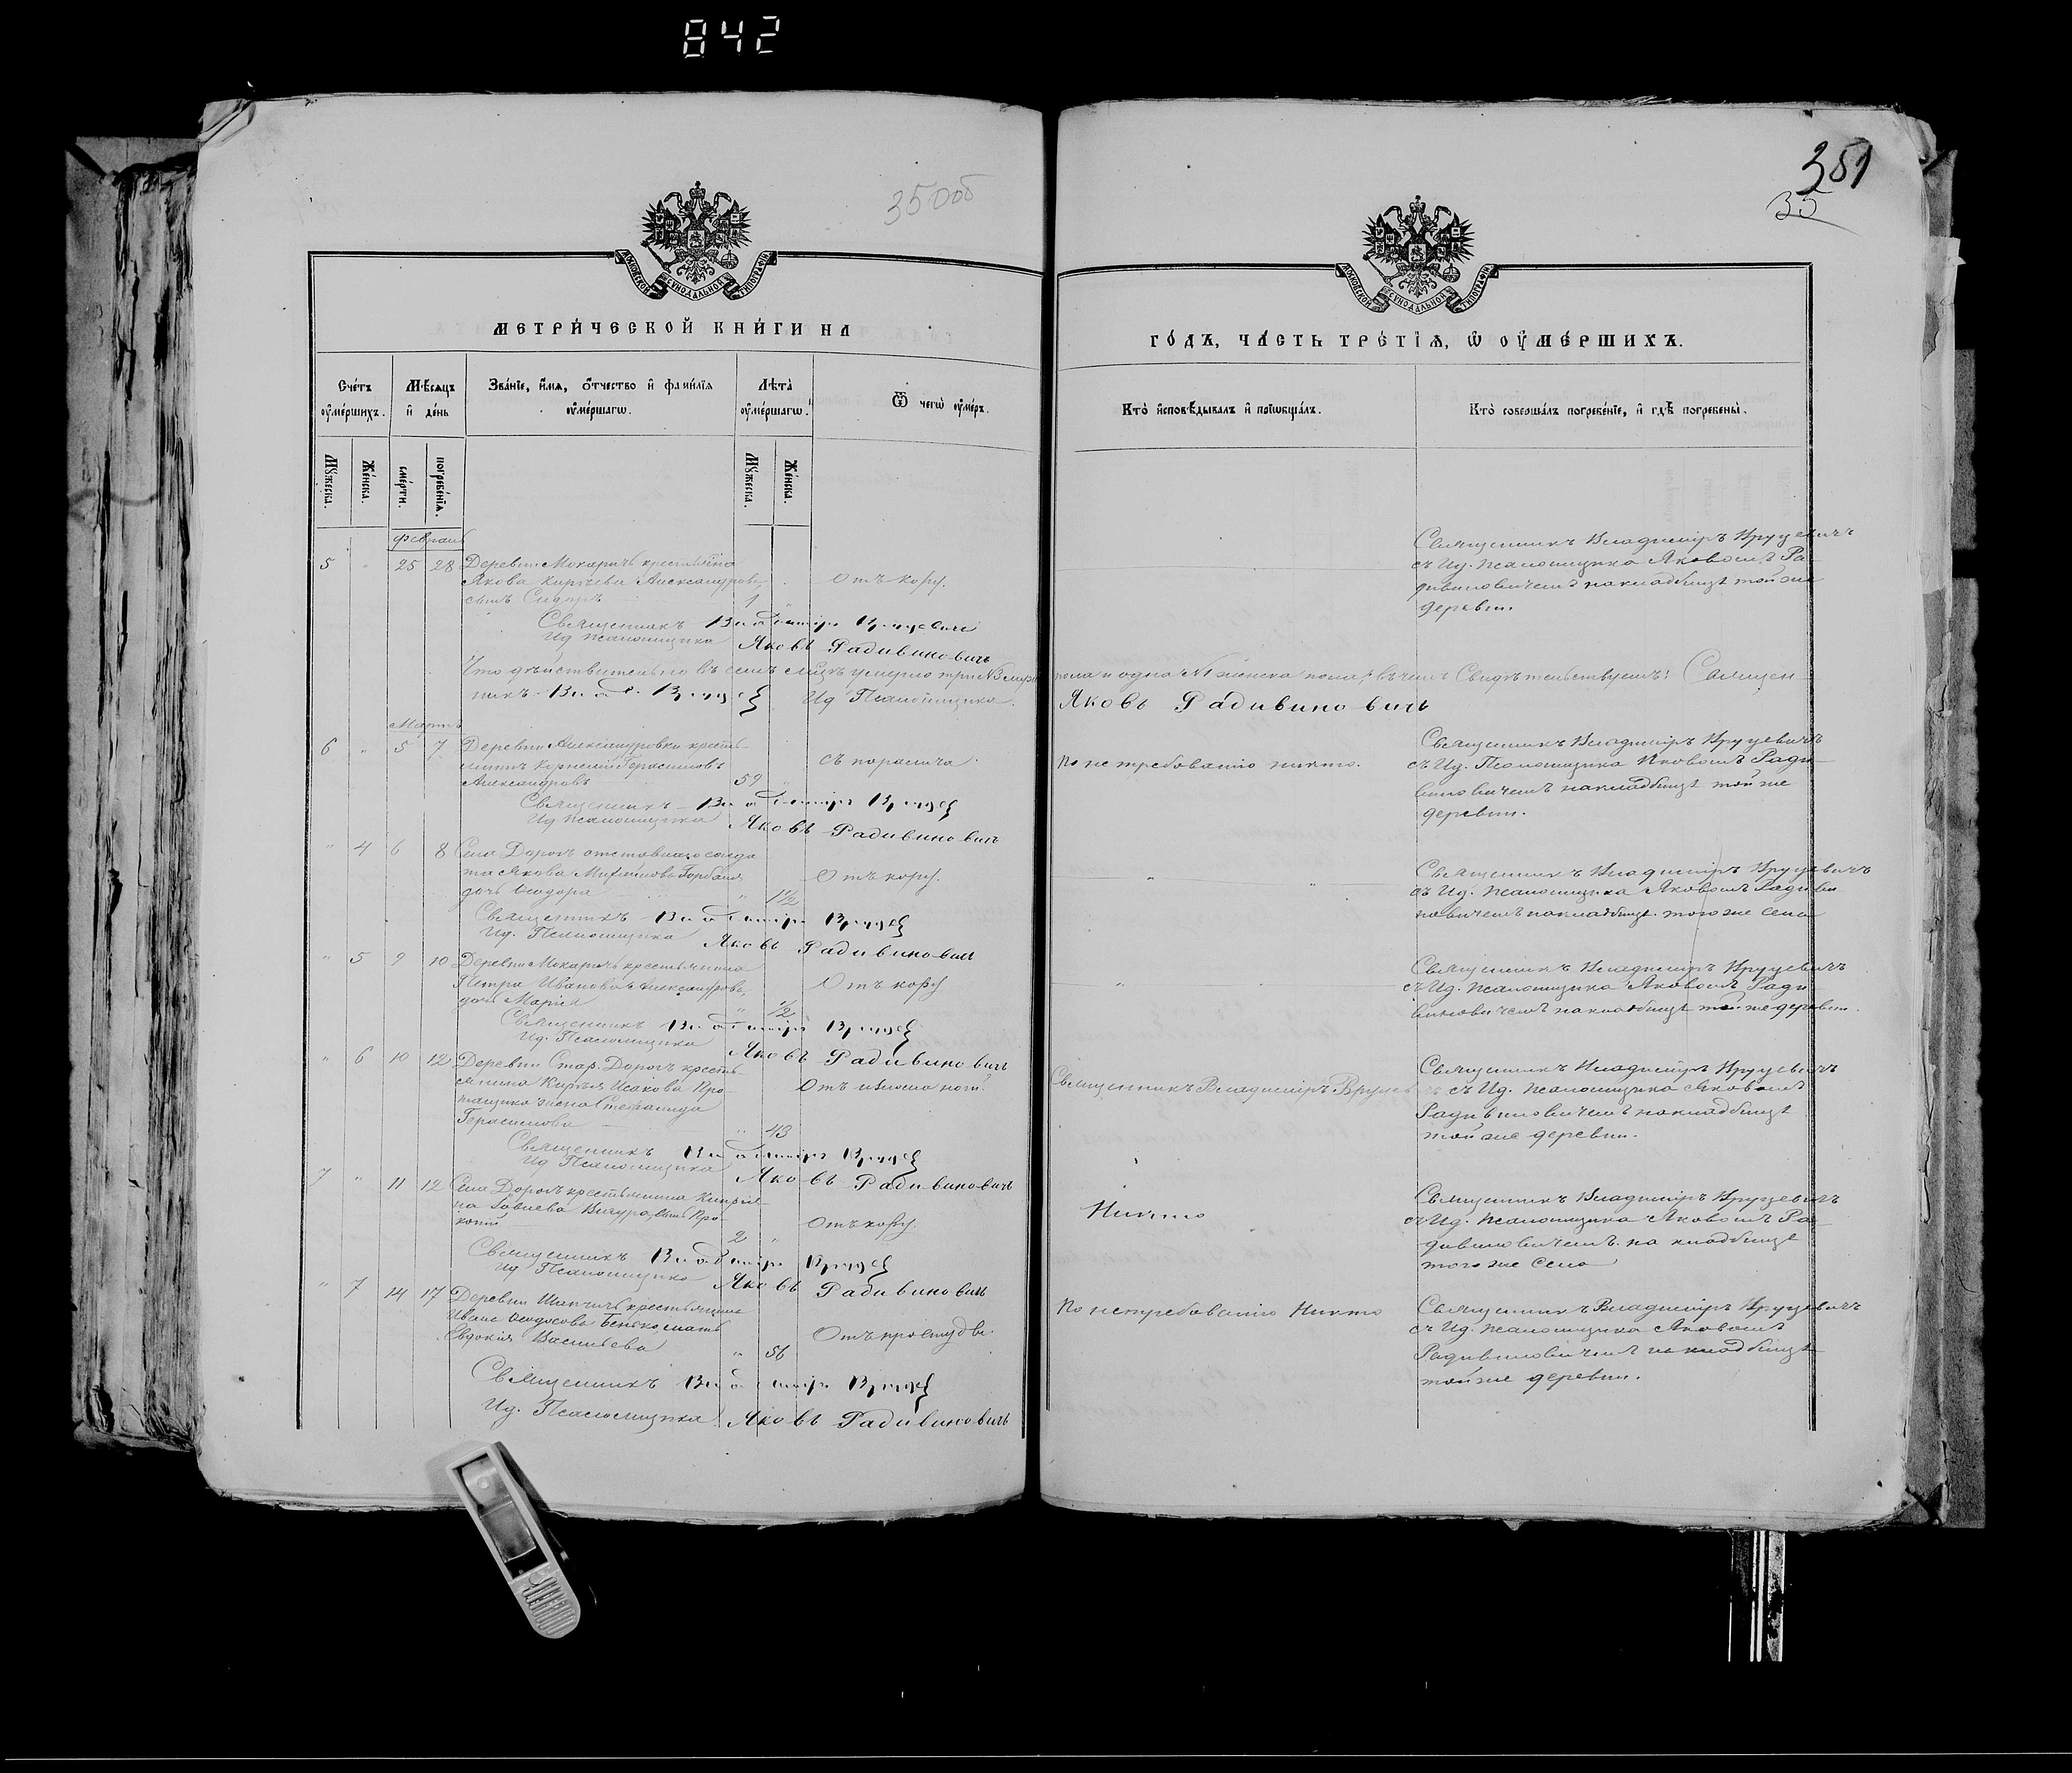 842
35 об
351
35
МОСКОВСКОЙ СѴНОДАЛЬНОЙ ТИПОГРАФІИ
МОСКОВСКОЙ СѴНОДАЛЬНОЙ ТИПОГРАФІИ
МЕТРИ́ЧЕСКОЙ КНИ́ГИ НА
ГО́ДЪ, ЧА́СТЬ ТРЕ́ТІѦ, Ѽ ОУ҆МЕ́РШИХЪ.
Сче́тъ оу҆ме́ршихъ.
Мѣ́сяцъ и҆ де́нь
Зва́нїе, и҆́мя, ѻ҆́тчество и҆ фами́лїя оу҆ме́ршагѡ.
Лѣ́та оу҆ме́ршагѡ.
Ѿ чегѡ̀ оу҆́меръ.
Кто̀ и҆сповѣ́дывалъ и҆ прїѡбща́лъ.
Кто̀ соверша́лъ погребе́нїе, и҆ гдѣ̀ погребены̀.
Мꙋ́жеска.
Же́нска.
сме́рти.
погребе́нїя.
Мꙋ́жеска.
Же́нска.
Февраль
5 " 25 28 Деревни Мокаричъ крестьянина
Якова Кирѣева Александрова,
сынъ Сидоръ 1
Отъ кору.
Священникъ Владиміръ Вруцевичъ
съ Ид. псаломщика Яковомъ Ра-
дивиновичемъ на кладбищѣ той же
деревни.
Священникъ Владиміръ Вруцевичъ
Ид псаломщика Яковъ Радивиновичъ
Что дѣйствительно въ семъ мѣсяцѣ умерло три №3 муж. пола и одна №1 женска пола, въ чемъ Свидѣтельствуемъ: Священ-
никъ Влад. Вруц Ид Псаломщика Яковъ Радивиновичъ
Мартъ
6 " 5 7 Деревни Александровки кресть-
янинъ Корнилій Герасимовъ
Александровъ 59 "
съ паралича.
По не требованію никто.
Священникъ Владиміръ Вруцевичъ
съ Ид. Псаломщика Яковомъ Ради-
виновичемъ на кладбищѣ той же
деревни.
Священникъ Владиміръ Вруц
Ид псаломщика Яковъ Радивиновичъ
" 4 6 8 Села Дорогъ отставнаго солда
та Якова
дочь Ѳеодора " 1½
Отъ кору.
Священникъ Владиміръ Вруцевичъ
съ Ид. псаломщика Яковомъ Радиви
новичемъ на кладбищѣ того же села
Священникъ Владиміръ Вруц
Ид. Псаломщика Яковъ Радивиновичъ
" 5 9 10 Деревни Мокаричъ крестьянина
Петра Иванова Александрова,
дочь Марія " ½
Отъ кору
Священникъ Владиміръ Вруцевичъ
съ Ид. псаломщика Яковомъ Ради
виновичемъ на кладбищѣ той же деревни.
Священникъ Владиміръ Вруц
Ид. Псаломщика Яковъ Радивиновичъ
" 6 10 12 Деревни Стар. Дорогъ кресть-
янина Кирѣя Исакова Про-
жена Степанида
Герасимова " 43
Священникъ Владиміръ Вруцев
Священникъ Владиміръ Вруцевичъ
съ Ид. псаломщика Яковомъ
Радивиновичемъ на кладбищѣ
той же деревни.
Священникъ Владиміръ Вруц
Ид Псаломщика Яковъ Радивиновичъ
7 " 11 12 Села Дорогъ крестьянина
сынъ Про-
копій 2 "
Отъ кору.
Никто
Священникъ Владиміръ Вруцевичъ
съ Ид. псаломщика Яковомъ Ра-
дивиновичемъ на кладбищѣ
того же Села
Священникъ Владиміръ Вруц
Ид Псаломщика Яковъ Радивиновичъ
" 7 14 17 Деревни крестьянина
Ивана Ѳеодосова мать
Евдокія Васильева " 56
Отъ простуды.
По не требованію Никто
Священникъ Владиміръ Вруцевичъ
съ Ид. псаломщика Яковомъ
Радивиновичемъ на кладбищѣ
той же деревни.
Священникъ Владиміръ Вруц
Ид. Псаломщика Яковъ Радивиновичъ